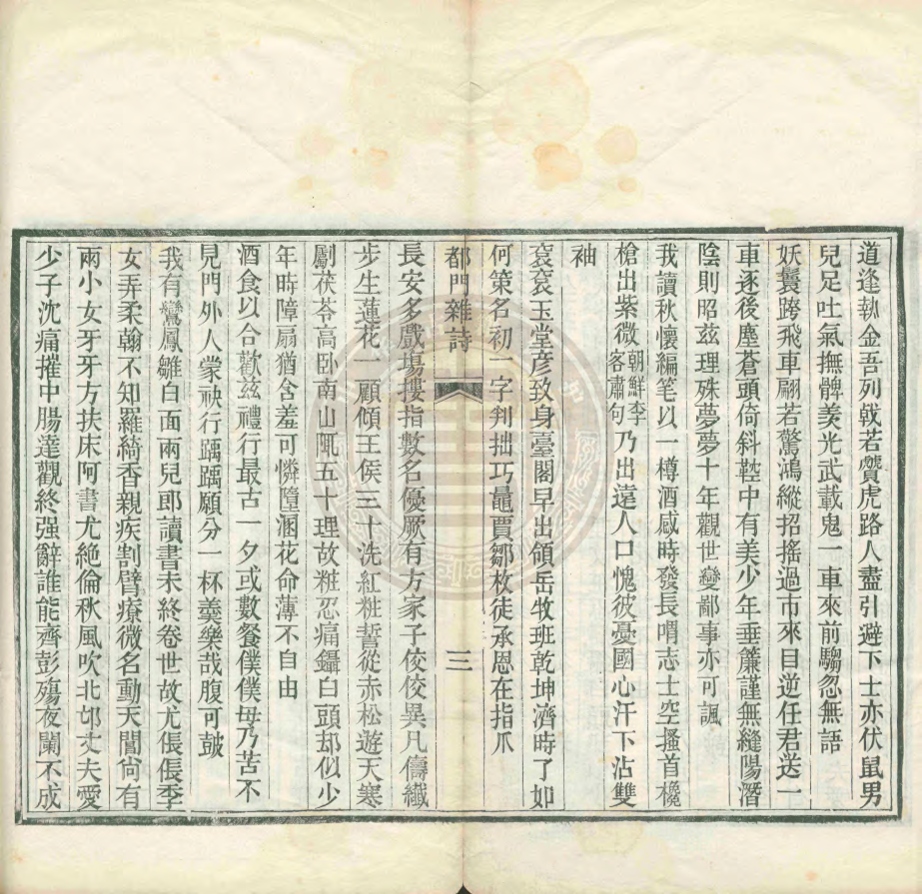 道逢執金吾列戟若贙虎路人盡引避下士亦伏鼠男
兒足吐氣撫髀羨光武載鬼一車來前騶忽無語
妖鬟跨飛車翩若驚鴻縱招搖過市來目逆任君送一
車逐後塵蒼頭倚斜鞚中有美少年垂簾謹無縫陽潛
陰則昭茲理殊夢夢十年觀世變鄙事亦可諷
我讀秋懷編笔以一樽酒感時發長喟志士空搔首欃
槍出紫微朝鮮李客肅句乃出遠人口愧彼憂國心汗下沾雙
袖
袞袞玉堂彥致身臺閣早出領岳牧班乾坤濟時了如
何策名初一字判拙巧鼂賈鄒枚徒承恩在指爪
都門雜詩
三
長安多戲場摟指數名優厥有方家子佼佼異凡儔纖
步生蓮花一顧傾王侯三十洗紅粧誓從赤松遊天寒
劚茯苓高卧南山陬五十理故粧忍痛鑷白頭却似少
年時障扇猶含羞可憐墮溷花命薄不自由
酒食以合歡茲禮行最古一夕或數餐僕僕毋乃苦不
見門外人蒙袂行踽踽願分一杯羹樂哉腹可鼓
我有鸞鳳雛白面兩兒郎讀書未終卷世故尤倀倀季
女弄柔翰不知羅綺香親疾割臂療微名動天閶尙有
兩小女牙牙方扶床阿書尤絶倫秋風吹北邙丈夫愛
少子沈痛摧中腸達觀終强辭誰能齊彭殤夜闌不成